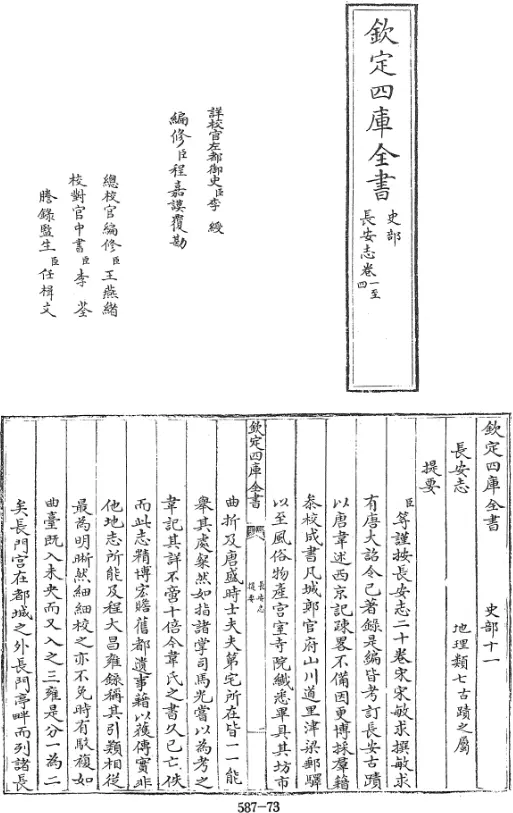 欽定四庫全書
史部
長安志卷一至
四
詳校官左都御史臣李綬
編修臣程嘉謨覆勘
總校官編修臣王燕緒
校對官中書臣李荃
謄錄監生臣任楫文
欽定四庫全書　史部十一
長安志　地理類七古蹟之屬
提要
臣等謹按長安志二十卷宋宋敏求撰敏求
有唐大詔令已著錄是編皆考訂長安古蹟
以唐韋述西京記疎畧不備因更博採羣籍
叅校成書凡城郭官府山川道里津梁郵驛
以至風俗物產宫室寺院纎悉畢具其坊市
欽定四庫全書
長安志
提要
一
曲折及唐盛時士夫夫第宅所在皆一一能
舉其處粲然如指諸掌司馬光嘗以為考之
韋記其詳不啻十倍今韋氏之書久已亡佚
而此志精博宏贍舊都遺事藉以獲傳實非
他地志所能及程大昌雍錄稱其引類相從
最為明晰然細細校之亦不免時有駁複如
曲臺既入未央而又入之三雍是分一為二
矣長門宫在都城之外長門亭畔而列諸長
587-73